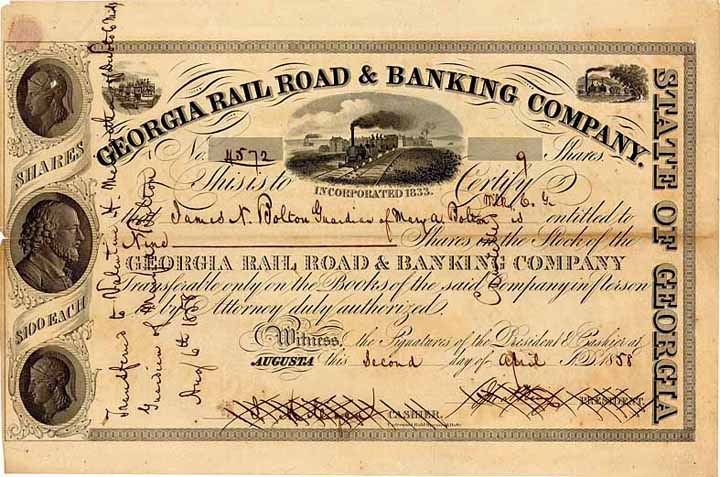 GEORGIA RAIL ROAD & BANKING COMPANY.
No. 4572
9 Shares
INCORPORATED 1833.
This is to Certify
James N. Bolton Guardian of Mary A Bolton is entitled to
Nine Shares in the Stock of the
GEORGIA RAIL ROAD & BANKING COMPANY
Transferable only on the Books of the said Company in Person
or by Attorney duly authorized.
Witness, the Signatures of the President & Cashier at
AUGUSTA this Second day of April A.D. 1858
CASHIER.
PRESIDENT.
SHARES
$100 EACH
STATE OF GEORGIA
Transferred to Valentine H.
Guardian of Mary A Bolton
Aug 6th 1858
Cancelled